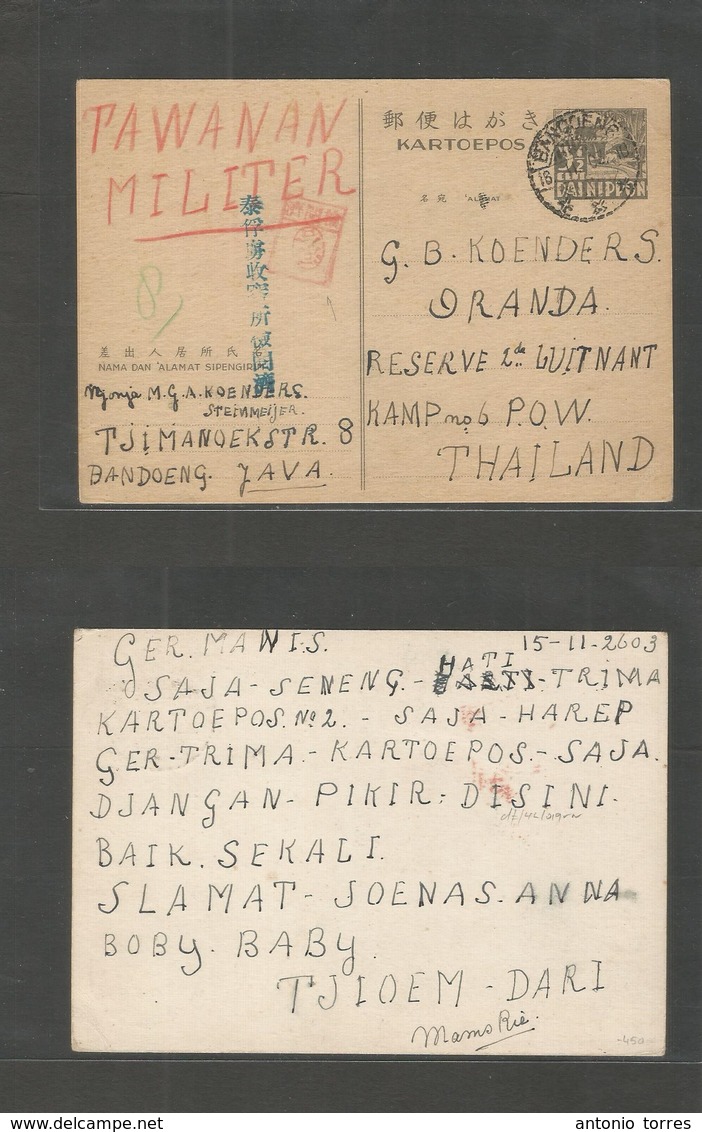 TAWANAN
MILITER
郵便はがき
KARTOEPOS
DAI NIPPON
名宛 'ALAMAT
8
泰俘虜収容所検閲済
G. B. KOENDERS.
ORANDA.
RESERVE 2de LUITNANT
KAMP no 6 P.O.W.
THAILAND
差出人居所氏名
NAMA DAN 'ALAMAT SIPENGIRIM
Njonja M.G.A. KOENDERS.
STEINMEIJER.
TJIMANOEKSTR. 8
BANDOENG. JAVA.
GER. MANIS. 15-11-2603
SAJA-SENENG.-HATI-TRIMA
KARTOEPOS. No 2. - SAJA-HAREP
GER-TRIMA-KARTOEPOS.-SAJA.
DJANGAN- PIKIR: DISINI.
BAIK. SEKALI.
SLAMAT-JOENAS. ANNA
BOBY. BABY.
TJIOEM - DARI
Mams Rie.
-450
antonio torres